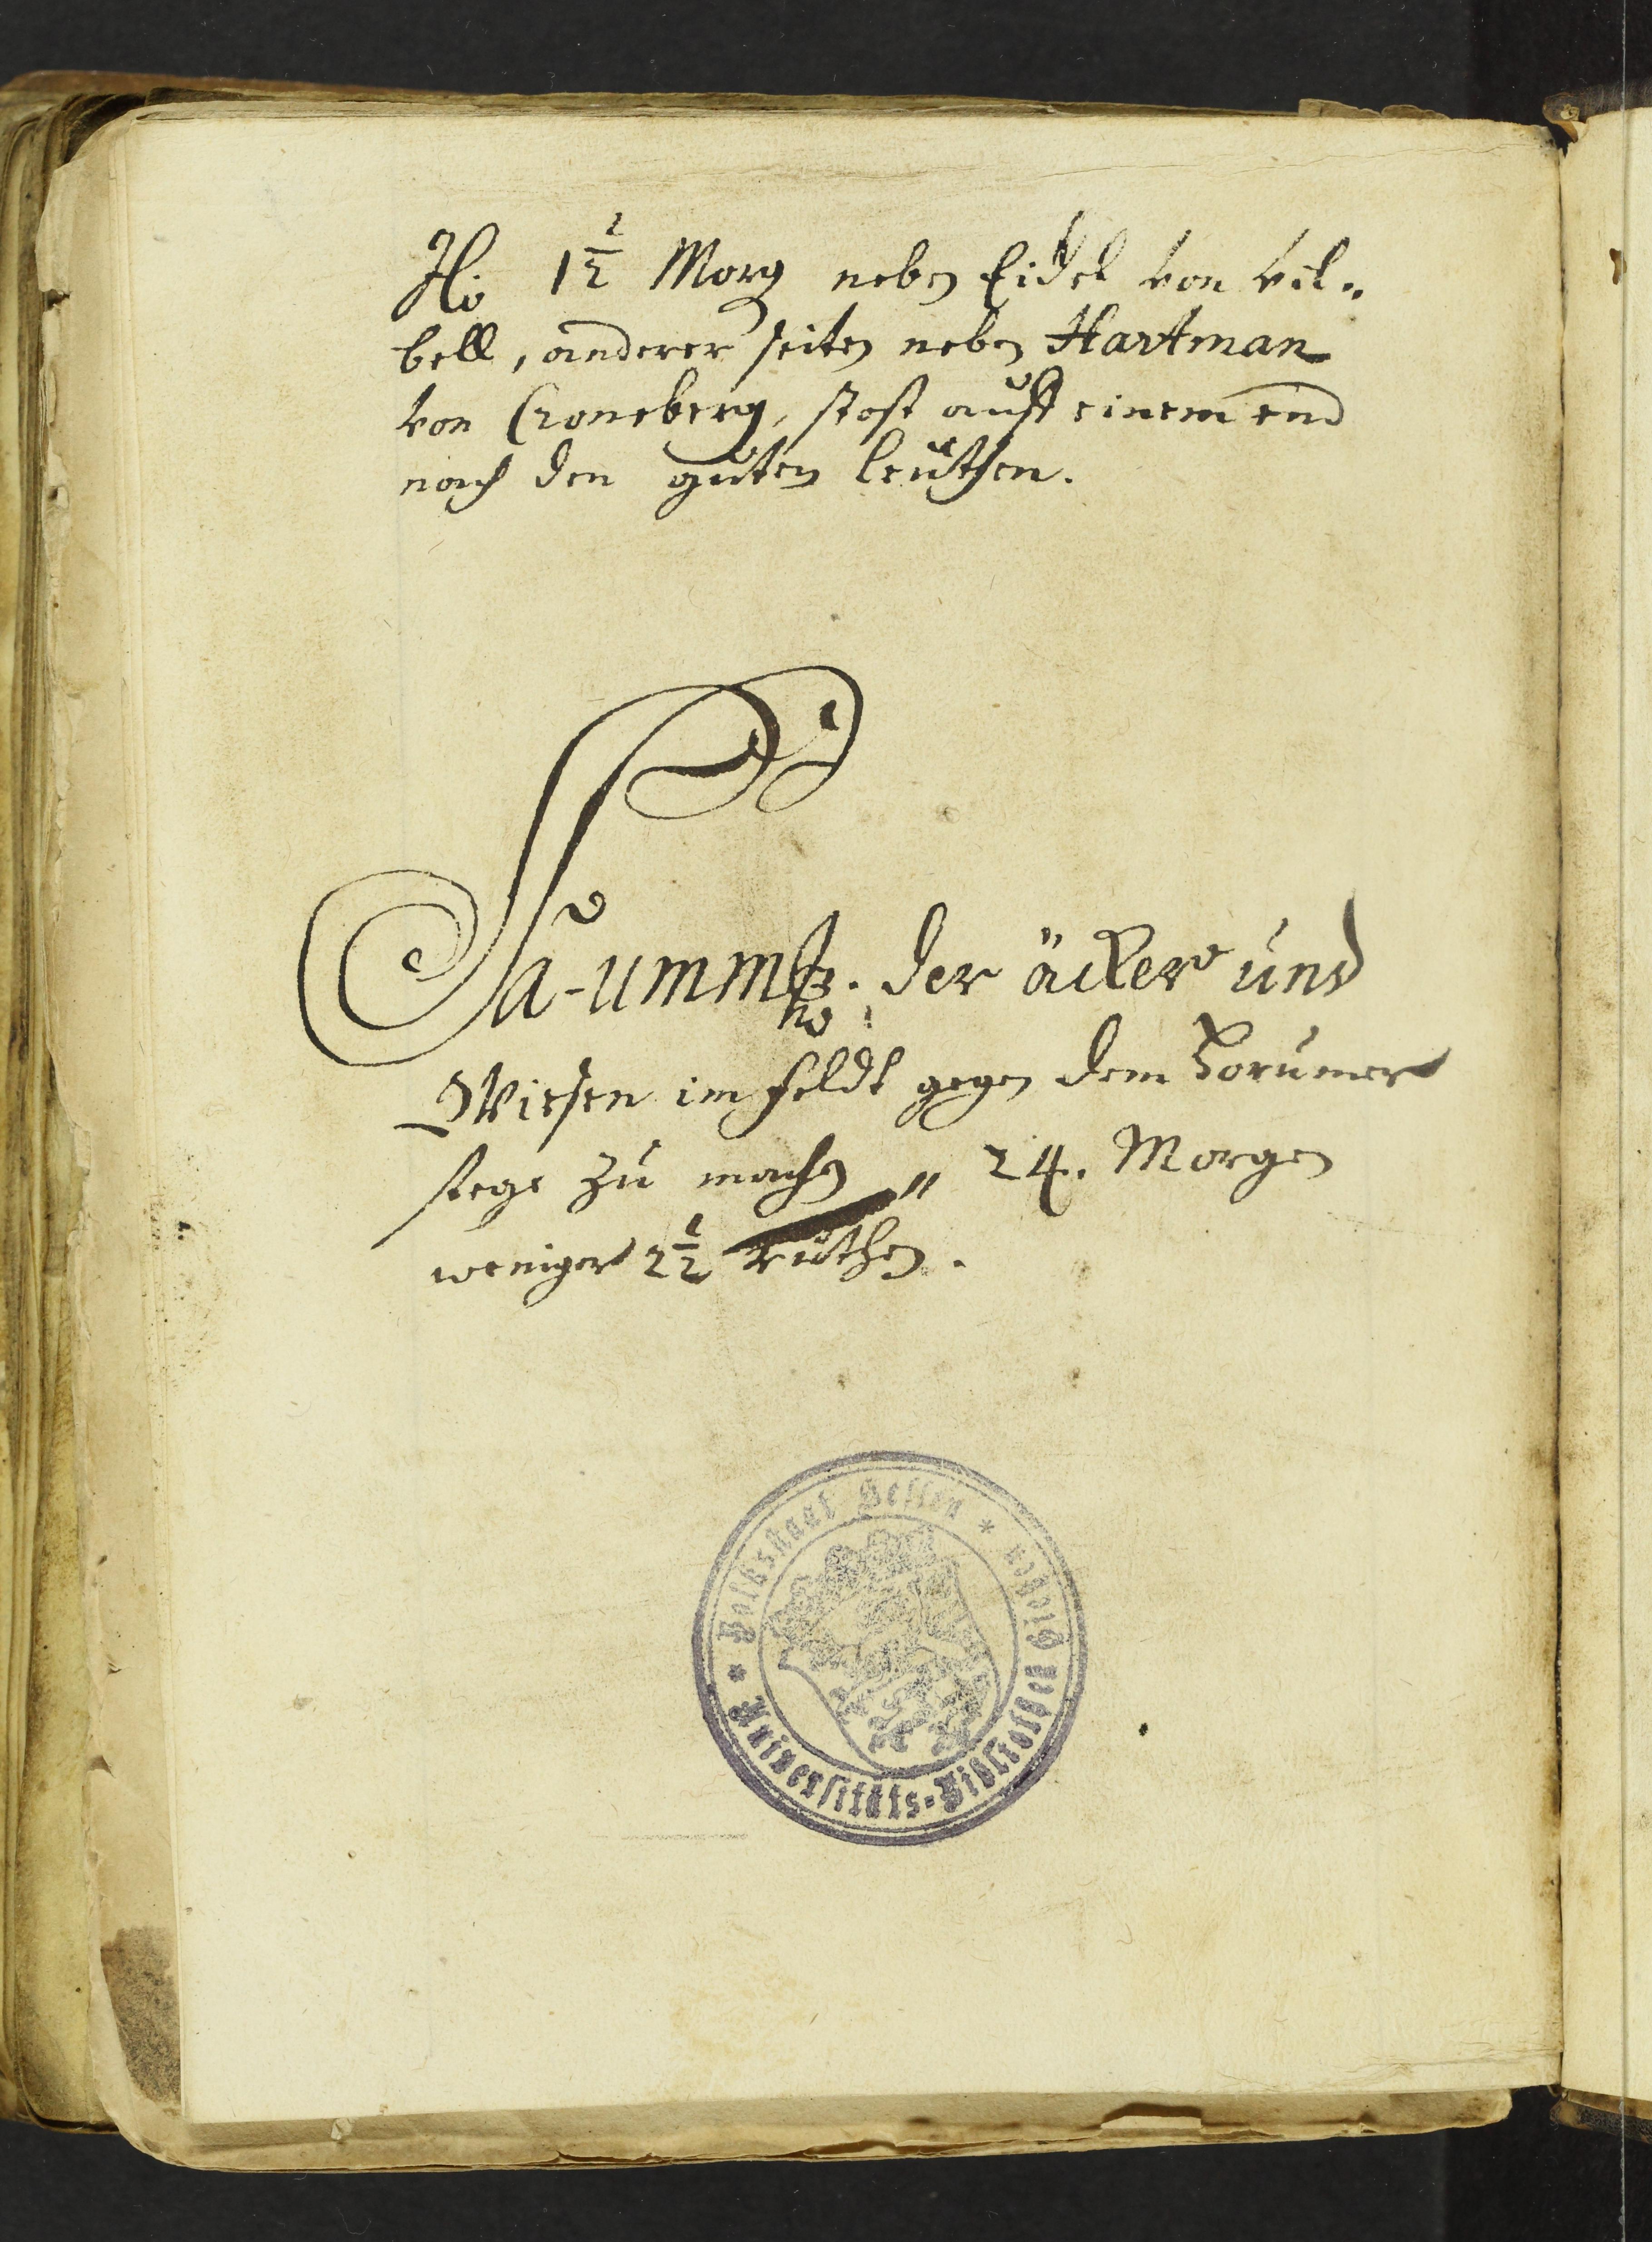 It. 1 1/2 Morg neben Eidel von vil„
bell, anderer seiten neben Hartman
von Croneberg, stost auff einem end
nach den guten leuthen.
der äcker und
Wiesen im feldt gegen dem
stege zu machen „ 24. Morgen
weniger 2 1/2 ruthen.
* Volksstaat Hessen *
Universitäts-Bibliothek Gießen